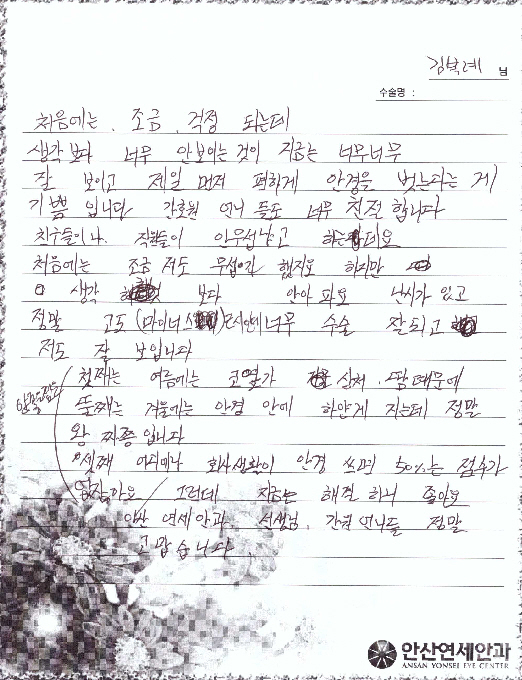 김복례 님
수술명 :
처음에는 조금 걱정 되는데
생각 보다 너무 안보이는 것이 지금은 너무너무
잘 보이고 제일 먼저 편하게 안경을 벗는다는 게
기쁨 입니다 간호원 언니 들도 너무 친절 합니다
친구들이나 직원들이 안무섭냐고 하는데요
처음에는 조금 저도 무섭 했지요 하지만
생각 보다 안아 파요 용기가 있고
정말 고도 (마이너스 너무 수술 잘 되고
저도 잘 보입니다
첫째는 여름에는 코옆가 실제 땀때문에
둘째는 겨울에는 안경 안에 하얗게 지는데 정말
왕 짜증 입니다
셋째 어디에나 회사생활이 안경 쓰면 50%는 점수가
그런데 지금은 해결 하니 좋아요
안산 연세안과 선생님, 간호 언니들 정말
고맙습니다
안산연세안과
ANSAN YONSEI EYE CENTER